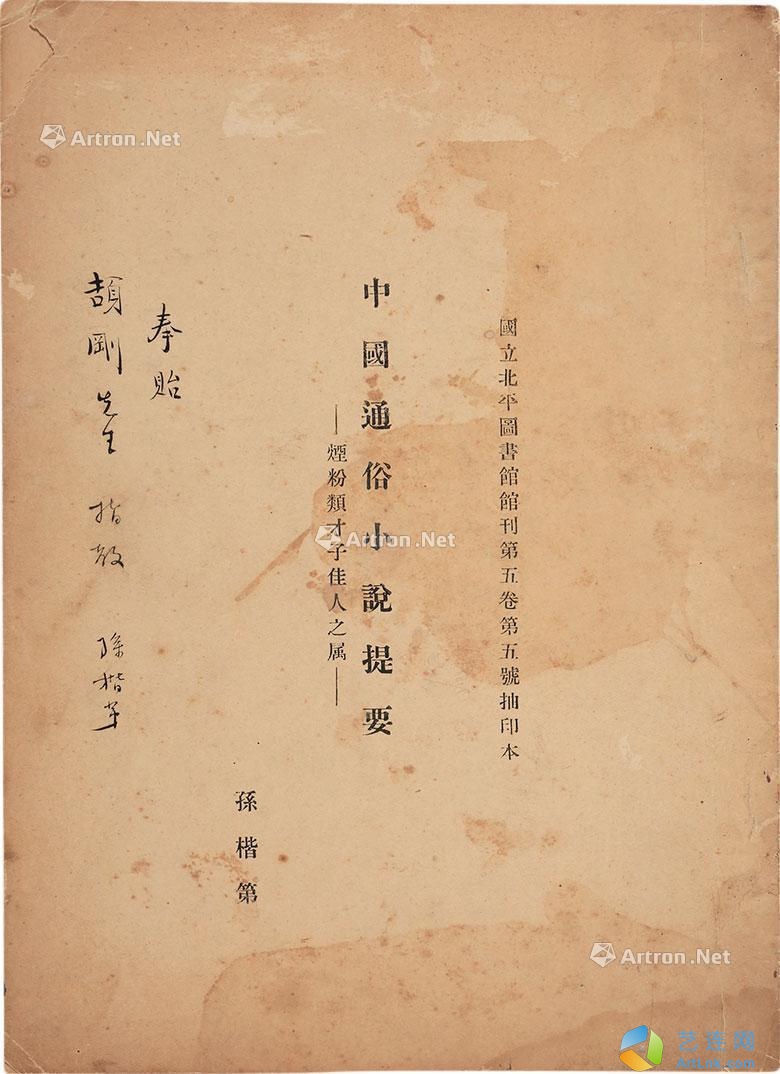 國立北平圖書館館刊第五卷第五號抽印本
中國通俗小說提要
—煙粉類才子佳人之属—
孫楷第
奉貽
頡剛先生 指教 孫楷第
Artron.Net
Artron.Net
Artron.Net
艺狂网
Artlink.com